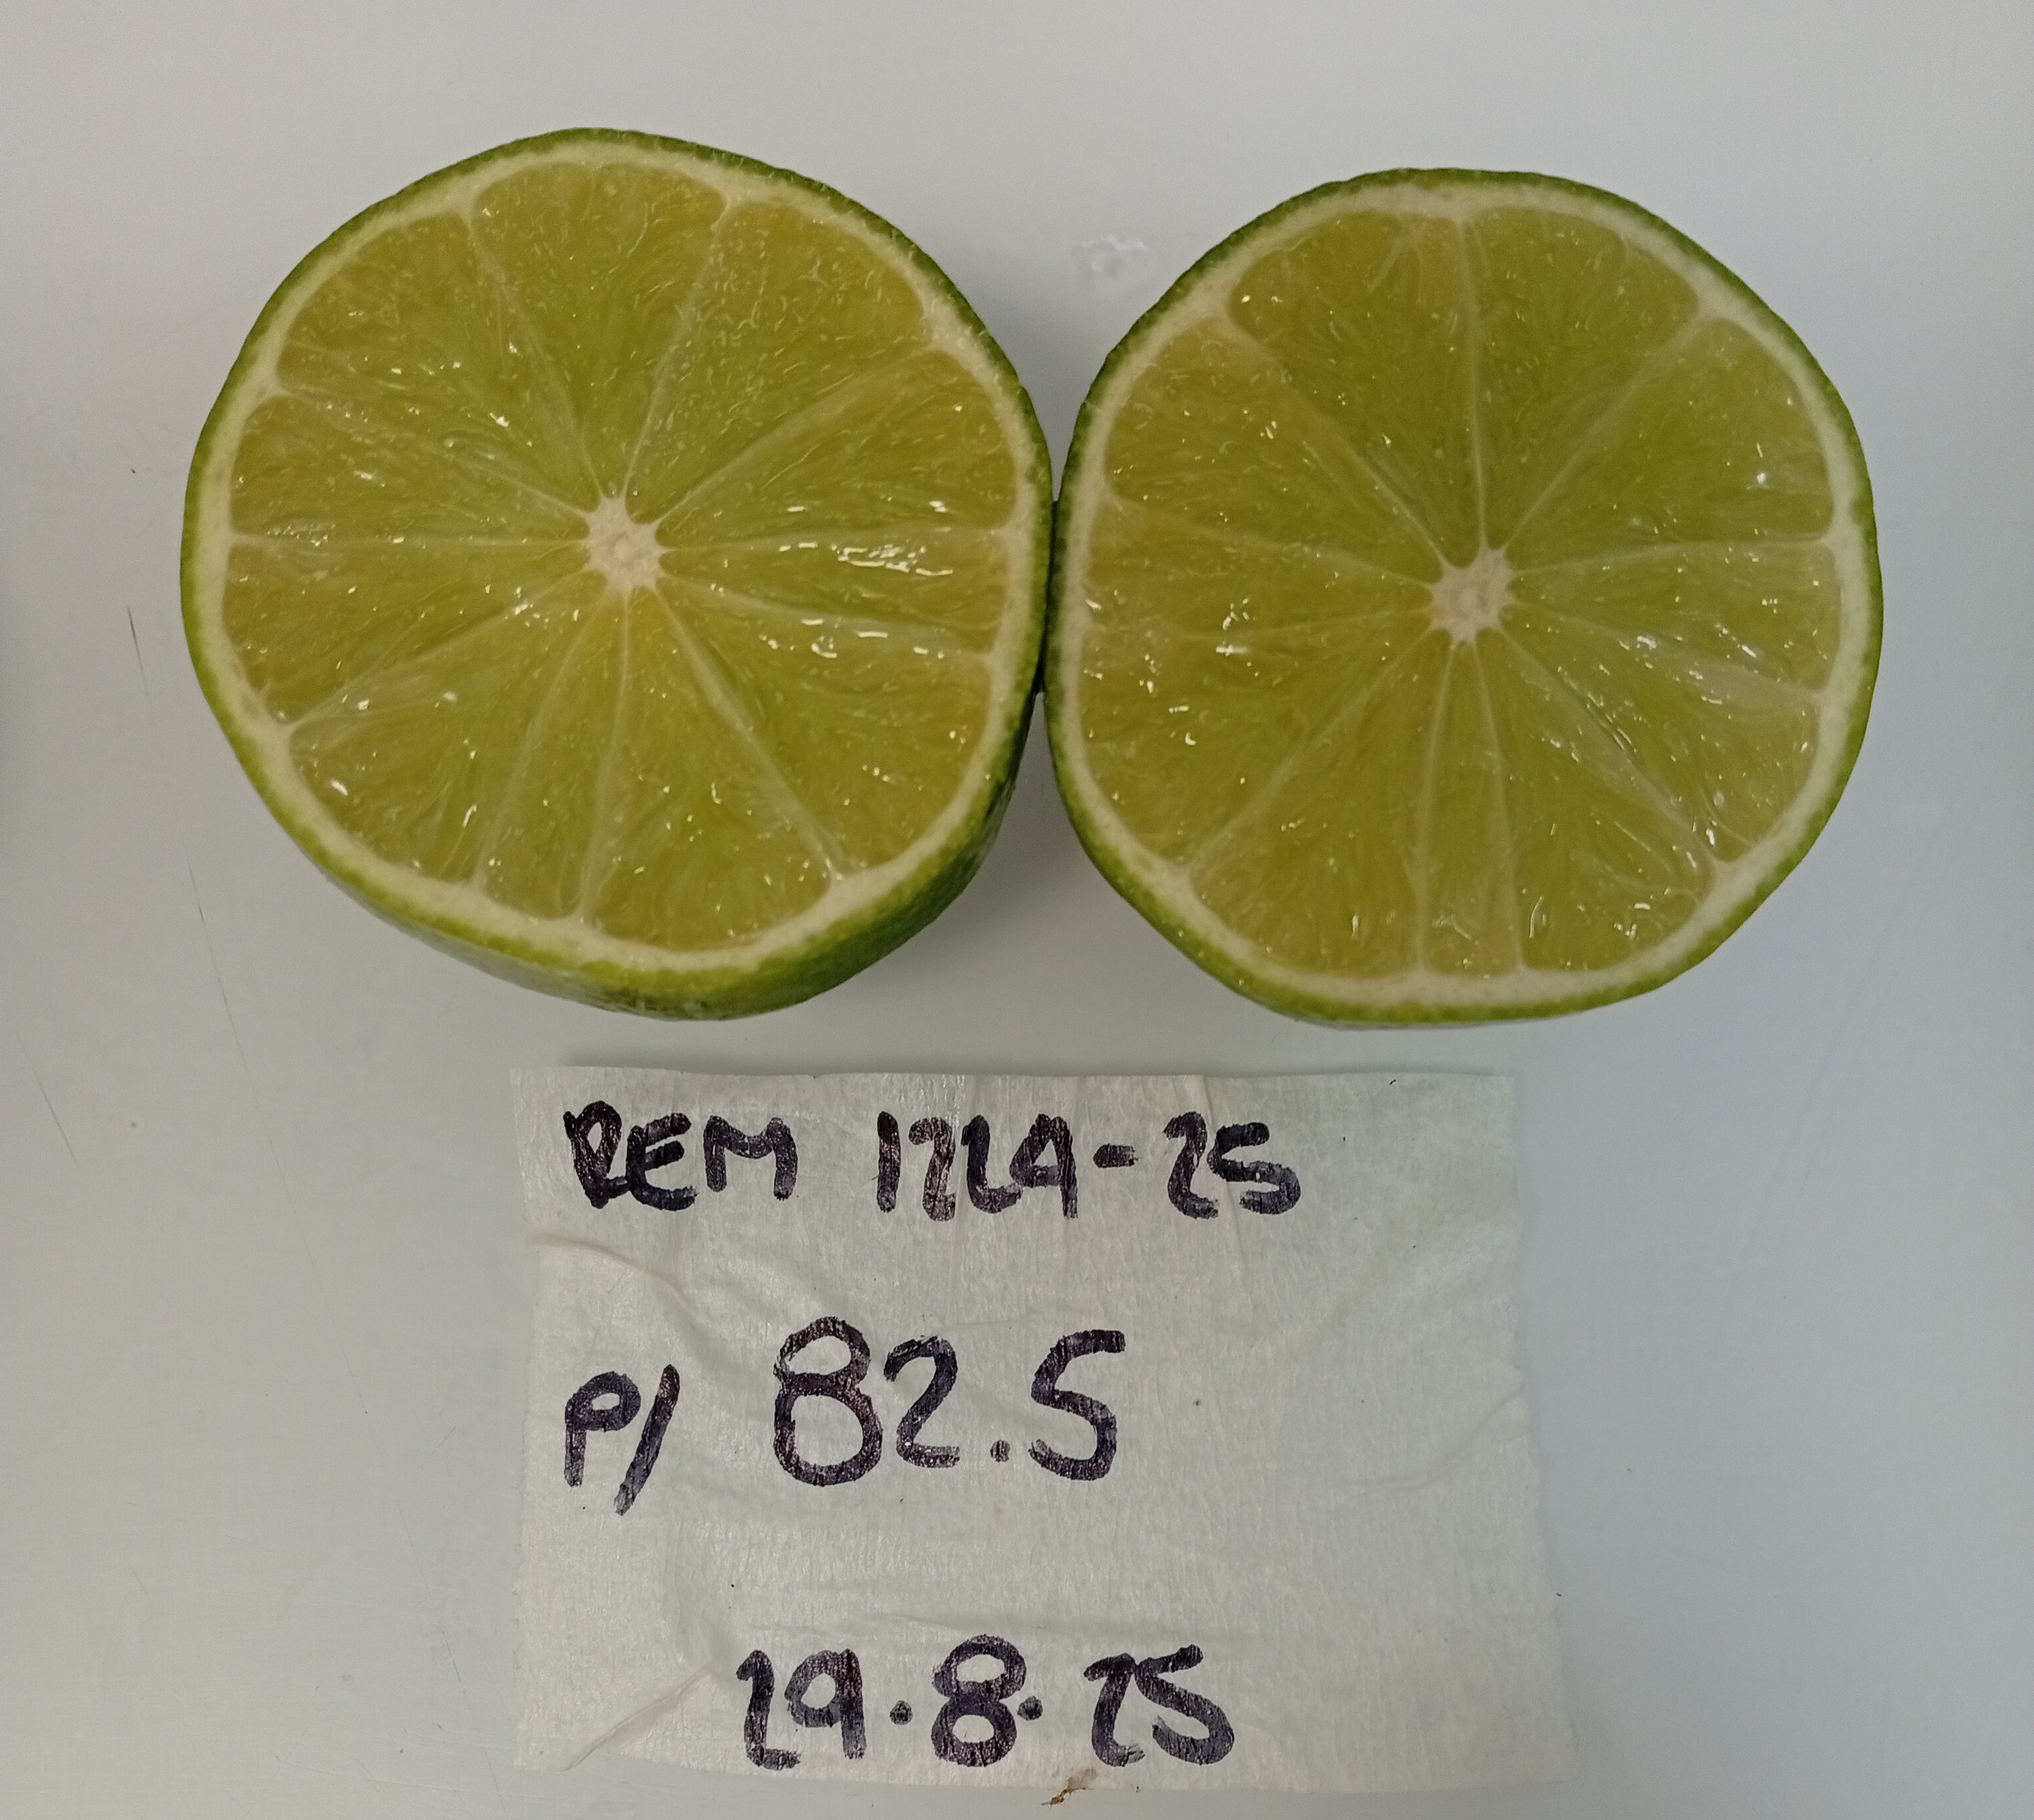 REM 1229-25
P/ 82.5
29.8.25